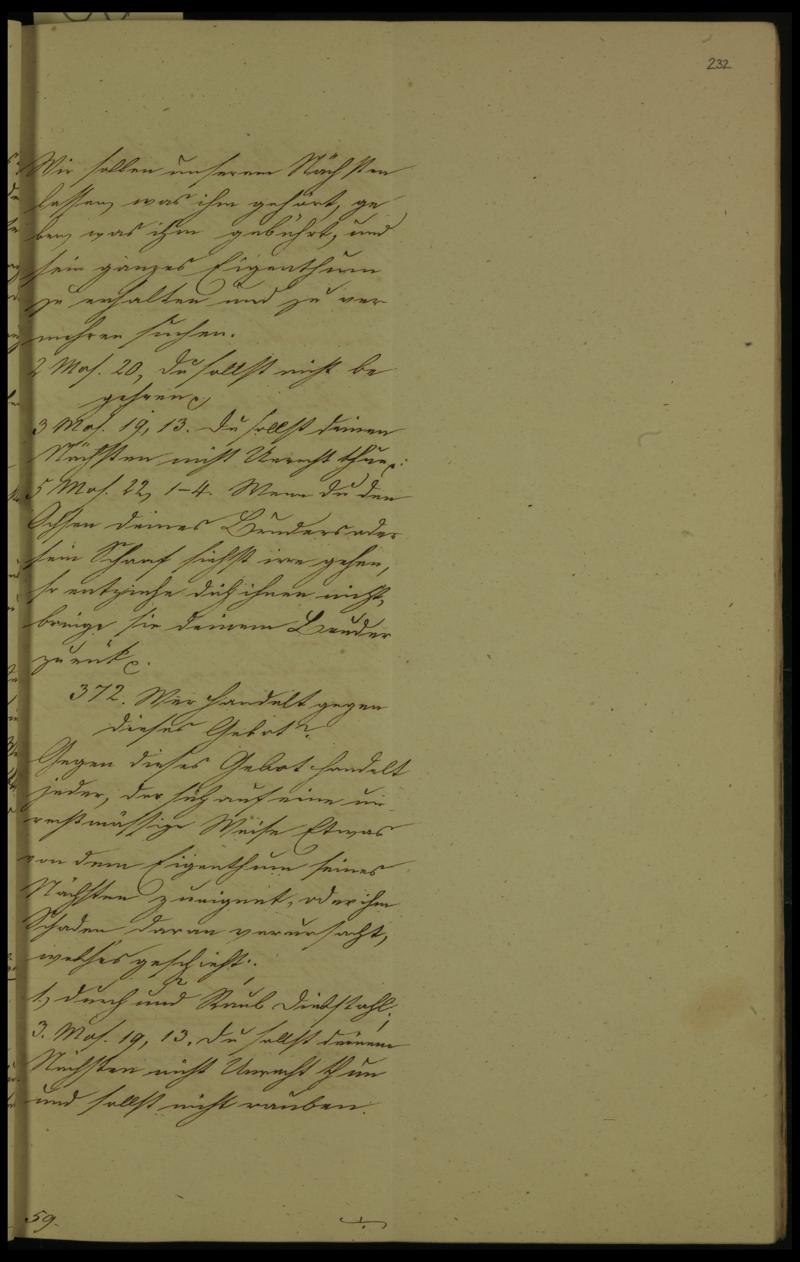 232
Wir sollen unserem Nächsten
lassen, was ihm gehört, ge
ben, was ihm gebührt, und
sein ganzes Eigenthum
zu erhalten und zu ver
mehren suchen.
2 Mos. 20, du sollst nicht be
gehren
3 Mos. 19, 13. du sollst deinem
Nächsten nicht Unrecht thun
5 Mos. 22, 1-4. Wenn du den
Ochsen deines Bruders oder
sein Schaaf siehst irre gehen,
so entziehe dich ihnen nicht,
bringe sie deinem Bruder
zurück
372. Wer handelt gegen
dieses Gebot?
Gegen dieses Gebot handelt
jeder, der sich auf eine un
rechtmässige Weise Etwas
von dem Eigenthum seines
Nächsten zueignet, oder ihm
Schaden daran verursacht,
welches geschieht:
1, durch und Raub Diebstahl.
3. Mos. 19, 13. du sollst deinem
Nächsten nicht Unrecht thun
und sollst nicht rauben.
59.